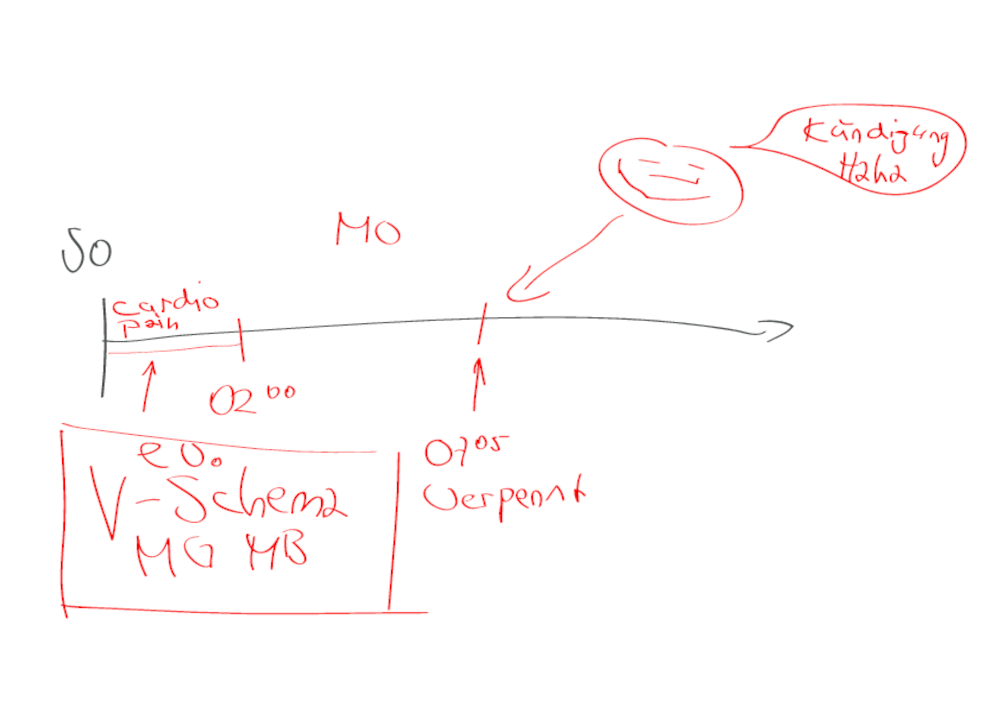 Kündigung
Haha
MO
SO
cardio
pain
02⁰⁰
ev.
V-Schema
MG MB
07⁰⁵
verpennt